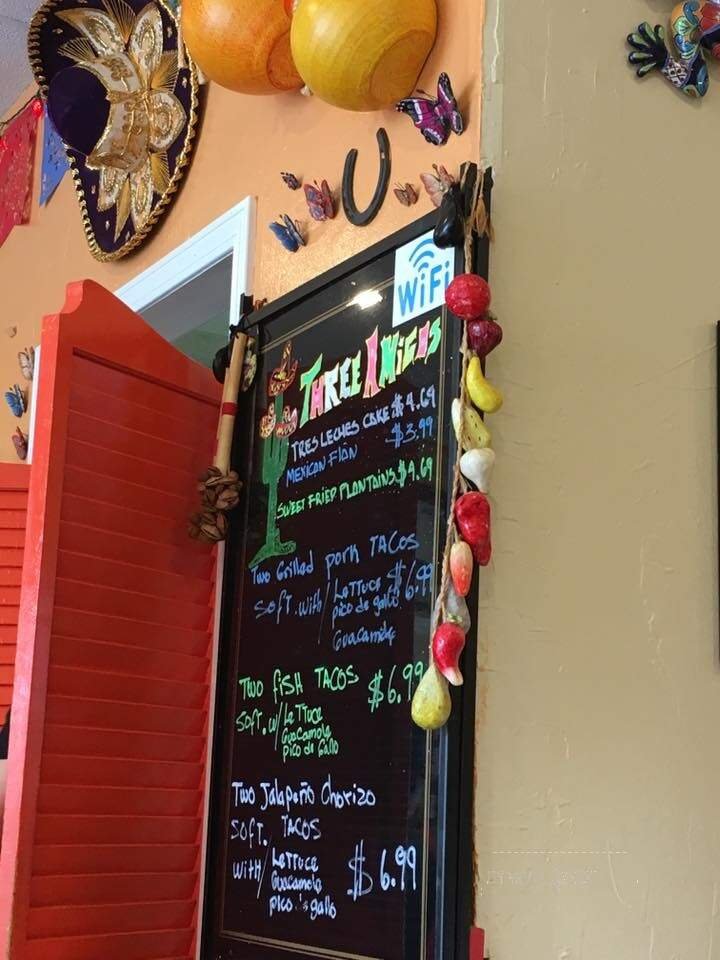 WiFi
THREE AMiGOS
TRES LECHES CAKE $4.69
MEXICAN FlAN $3.99
SWEET FRIED PLANTAINS $4.69
Two Grilled pork TACos
SOFT. with/ LeTTuce $6.99
pico de gallo
Guacamole
Two fiSH TACOS $6.99
SOFT. w/ LeTTuce
Guacamole
pico de Gallo
Two Jalapeño Chorizo
SOFT. TACOS
with/ LeTTuce $6.99
Guacamole
pico 's gallo